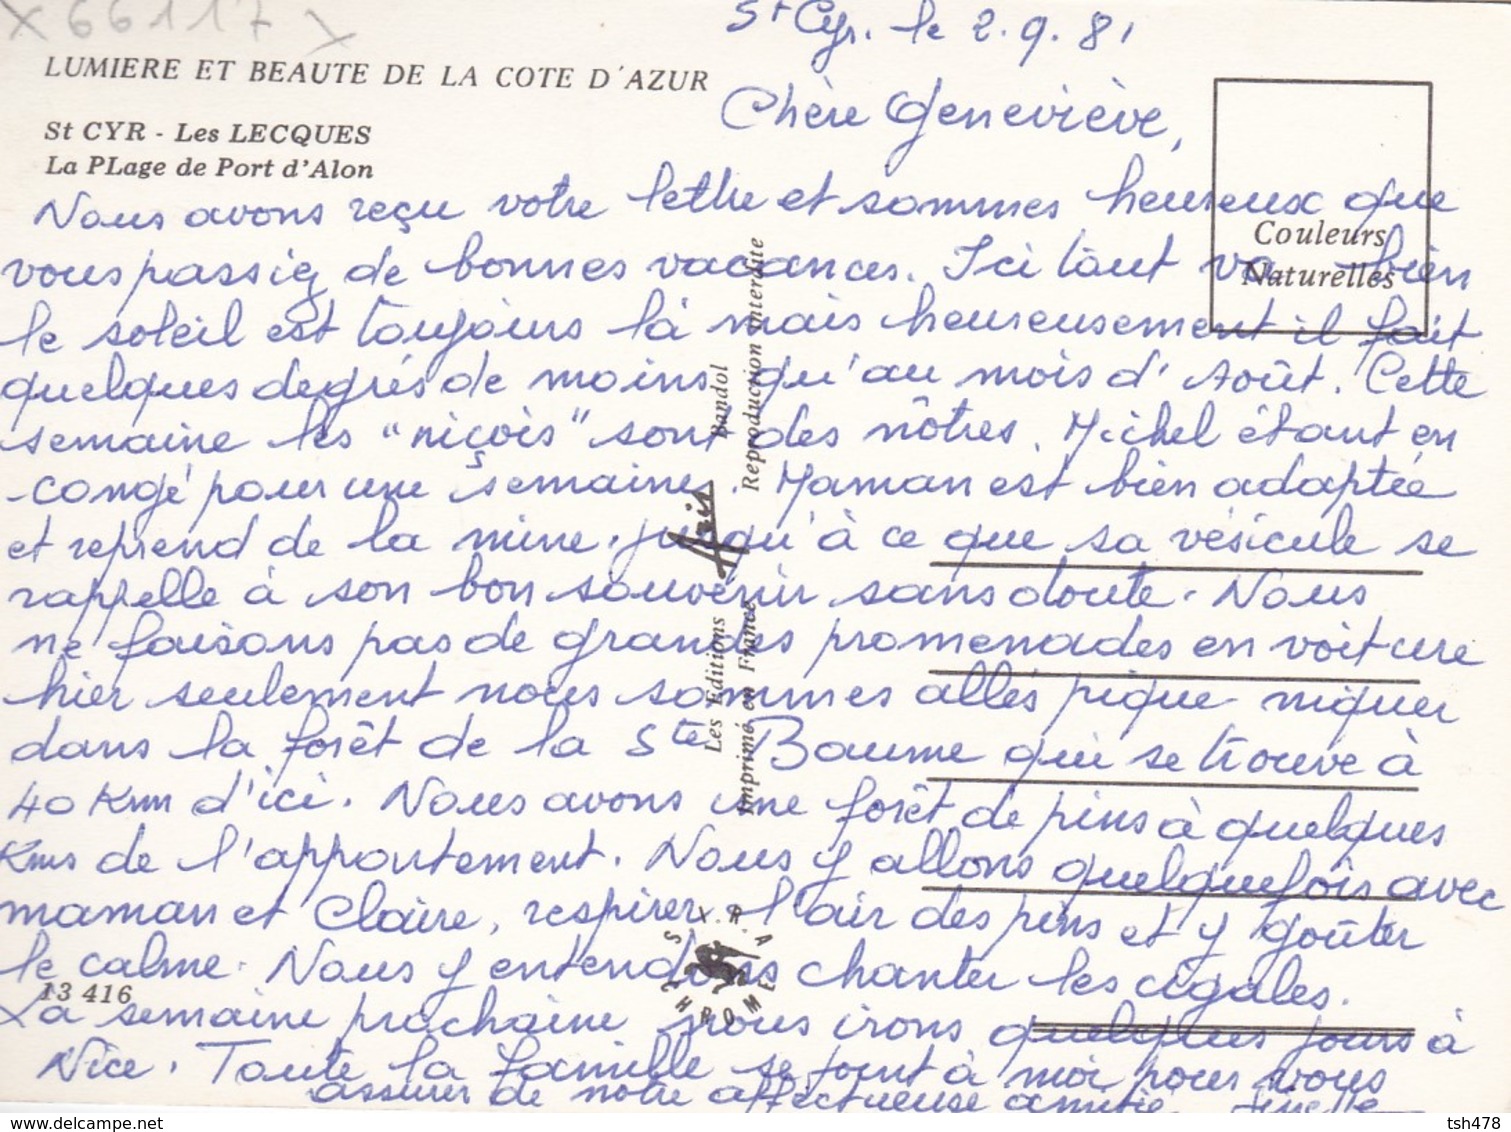 X 66117 X
St Cyr. le 2.9.81
LUMIERE ET BEAUTE DE LA COTE D'AZUR
Chère Geneviève,
St CYR - Les LECQUES
La PLage de Port d'Alon
Couleurs
Naturelles
Nous avons reçu votre lettre et sommes heureux que
vous passiez de bonnes vacances. Ici tout va bien
le soleil est toujours là mais heureusement il fait
quelques degrés de moins qu'au mois d'Août. Cette
semaine les "niçois" sont des nôtres. Michel étant en
congé pour une semaine. Maman est bien adaptée
et reprend de la mine. jusqu'à ce que sa vésicule se
rappelle à son bon souvenir sans doute. Nous
ne faisons pas de grandes promenades en voiture
hier seulement nous sommes allés pique niquer
dans la forêt de la Ste Baume qui se trouve à
40 Kms d'ici. Nous avons une forêt de pins à quelques
Kms de l'appartement. Nous y allons quelquefois avec
maman et Claire, respirer l'air des pins et y goûter
le calme. Nous y entendons chanter les cigales.
La semaine prochaine nous irons quelques jours à
Nice. Toute la famille se joint à moi pour vous
assurer de notre affectueuse amitié.
Les Editions Azis Bandol
Imprimé en France Reproduction interdite
S.P.I.R.A
CHROME
13 416
www.delcampe.net
tsh478